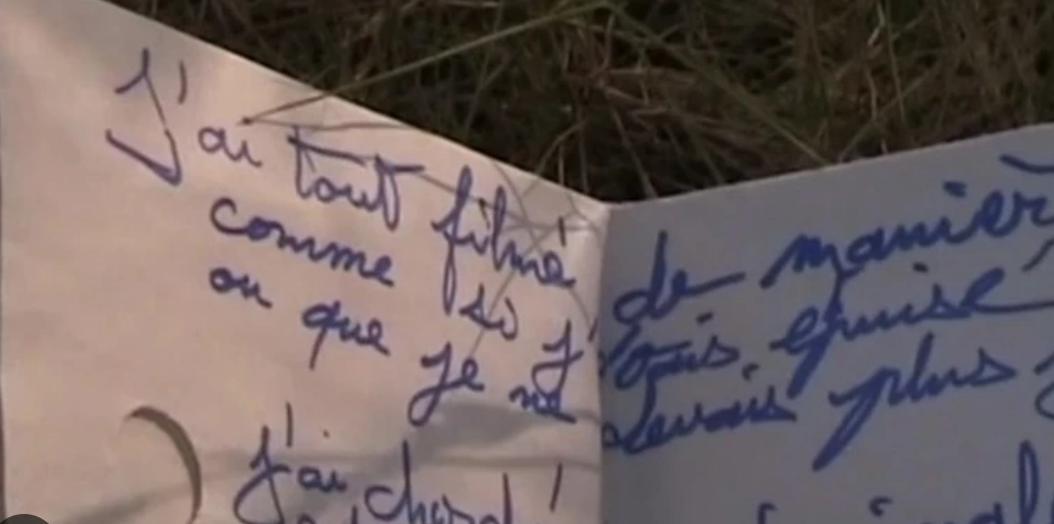 J'ai tout filmé de manièr
comme si j'étais épuisé
ou que je ne devais plus
J'ai